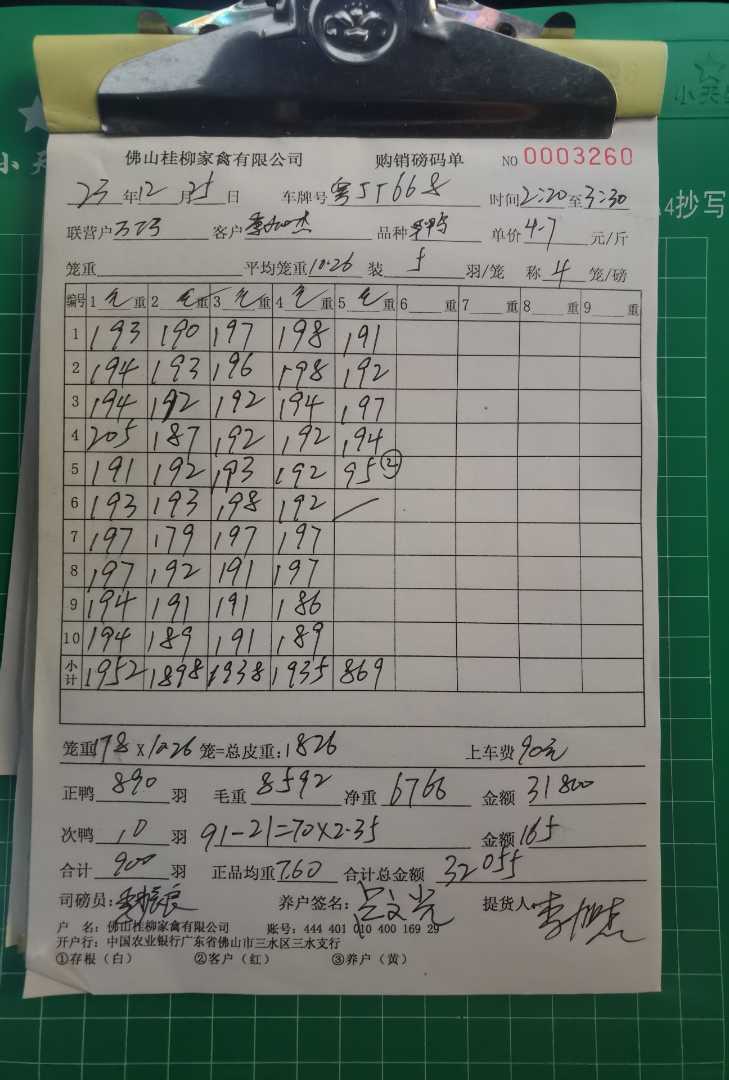 小天
小天
4抄写
佛山桂柳家禽有限公司 购销磅码单 NO 0003260
23 年 12 月 25 日 车牌号 粤JT6668 时间 2:20 至 3:30
联营户 客户 品种 单价 4.7 元/斤
笼重 平均笼重 10.26 装 5 羽/笼 称 4 笼/磅
编号 1 毛 重 2 毛 重 3 毛 重 4 毛 重 5 毛 重 6 重 7 重 8 重 9 重
1 193 190 197 198 191
2 194 193 196 198 192
3 194 192 192 194 197
4 205 187 192 192 194
5 191 192 193 192 95 ②
6 193 193 198 192
7 197 179 197 197
8 197 192 191 197
9 194 191 191 186
10 194 189 191 189
小计 1952 1898 1938 1935 869
笼重 178 X 10.26 笼=总皮重: 1826 上车费 90元
正鸭 890 羽 毛重 8592 净重 6766 金额 31800
次鸭 10 羽 91-21=70×2.35 金额 165
合计 900 羽 正品均重 7.60 合计总金额 32055
司磅员: 养户签名: 提货人: 李旭杰
户 名: 佛山桂柳家禽有限公司 账号: 444 401 010 400 169 29
开户行: 中国农业银行广东省佛山市三水区三水支行
①存根（白） ②客户（红） ③养户（黄）